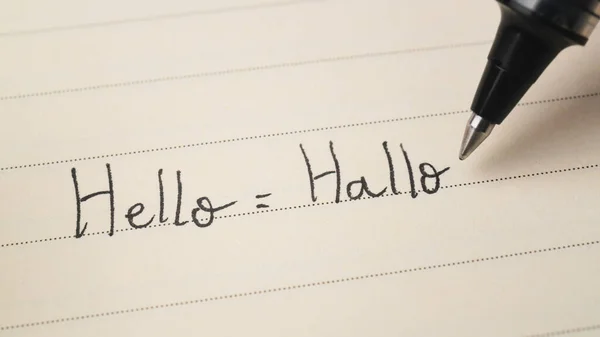 Hello = Hallo